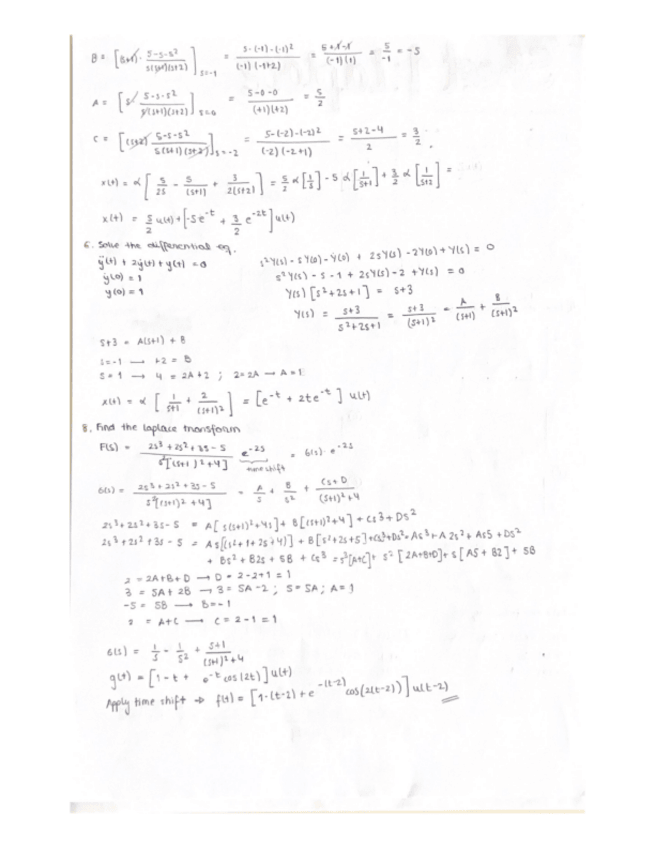 B = [(s+1) · 5-s-s² / s(s+1)(s+2)] s=-1 = 5-(-1)-(-1)² / (-1)(-1+2) = 5+1-1 / (-1)(1) = 5/-1 = -5
A = [s 5-s-s² / s(s+1)(s+2)] s=0 = 5-0-0 / (+1)(+2) = 5/2
C = [(s+2) 5-s-s² / s(s+1)(s+2)] s=-2 = 5-(-2)-(-2)² / (-2)(-2+1) = 5+2-4 / 2 = 3/2 .
x(t) = α [5/2s - 5/(s+1) + 3/2(s+2)] = 5/2 α[1/s] - 5 α[1/s+1] + 3/2 α[1/s+2] =
x(t) = 5/2 u(t) + [-5e^-t + 3/2 e^-2t] u(t)
6. Solve the differential eq.
ÿ(t) + 2ẏ(t) + y(t) = 0
ẏ(0) = 1
y(0) = 1
s²Y(s) - sY(0) - Ẏ(0) + 2sY(s) - 2Y(0) + Y(s) = 0
s²Y(s) - s - 1 + 2sY(s) - 2 + Y(s) = 0
Y(s) [s² + 2s + 1] = s+3
Y(s) = s+3 / s²+2s+1 = s+3 / (s+1)² = A/(s+1) + B/(s+1)²
s+3 = A(s+1) + B
s=-1 → +2 = B
s=1 → 4 = 2A+2 ; 2=2A → A=1
x(t) = α [1/s+1 + 2/(s+1)²] = [e^-t + 2te^-t] u(t)
8. Find the laplace transform
F(s) = 2s³+2s²+3s-5 / s²[(s+1)²+4] e^-2s = G(s)·e^-2s
time shift
G(s) = 2s³+2s²+3s-5 / s²[(s+1)²+4] = A/s + B/s² + Cs+D / (s+1)²+4
2s³+2s²+3s-5 = A[s(s+1)²+4s] + B[(s+1)²+4] + Cs³+Ds²
2s³+2s²+3s-5 = As[(s²+1+2s+4)] + B[s²+2s+5] + Cs³+Ds² = As³+A2s²+As5+Ds²
+ Bs² + B2s + 5B + Cs³ = s³[A+C] + s²[2A+B+D] + s[A5+B2] + 5B
2 = 2A+B+D → D = 2-2+1 = 1
3 = 5A+2B → 3 = 5A-2 ; 5=5A ; A=1
-5 = 5B → B=-1
2 = A+C → C=2-1=1
G(s) = 1/s - 1/s² + s+1 / (s+1)²+4
g(t) = [1-t + e^-t cos(2t)] u(t)
Apply time shift ⇒ f(t) = [1-(t-2)+e^-(t-2) cos(2(t-2))] u(t-2)